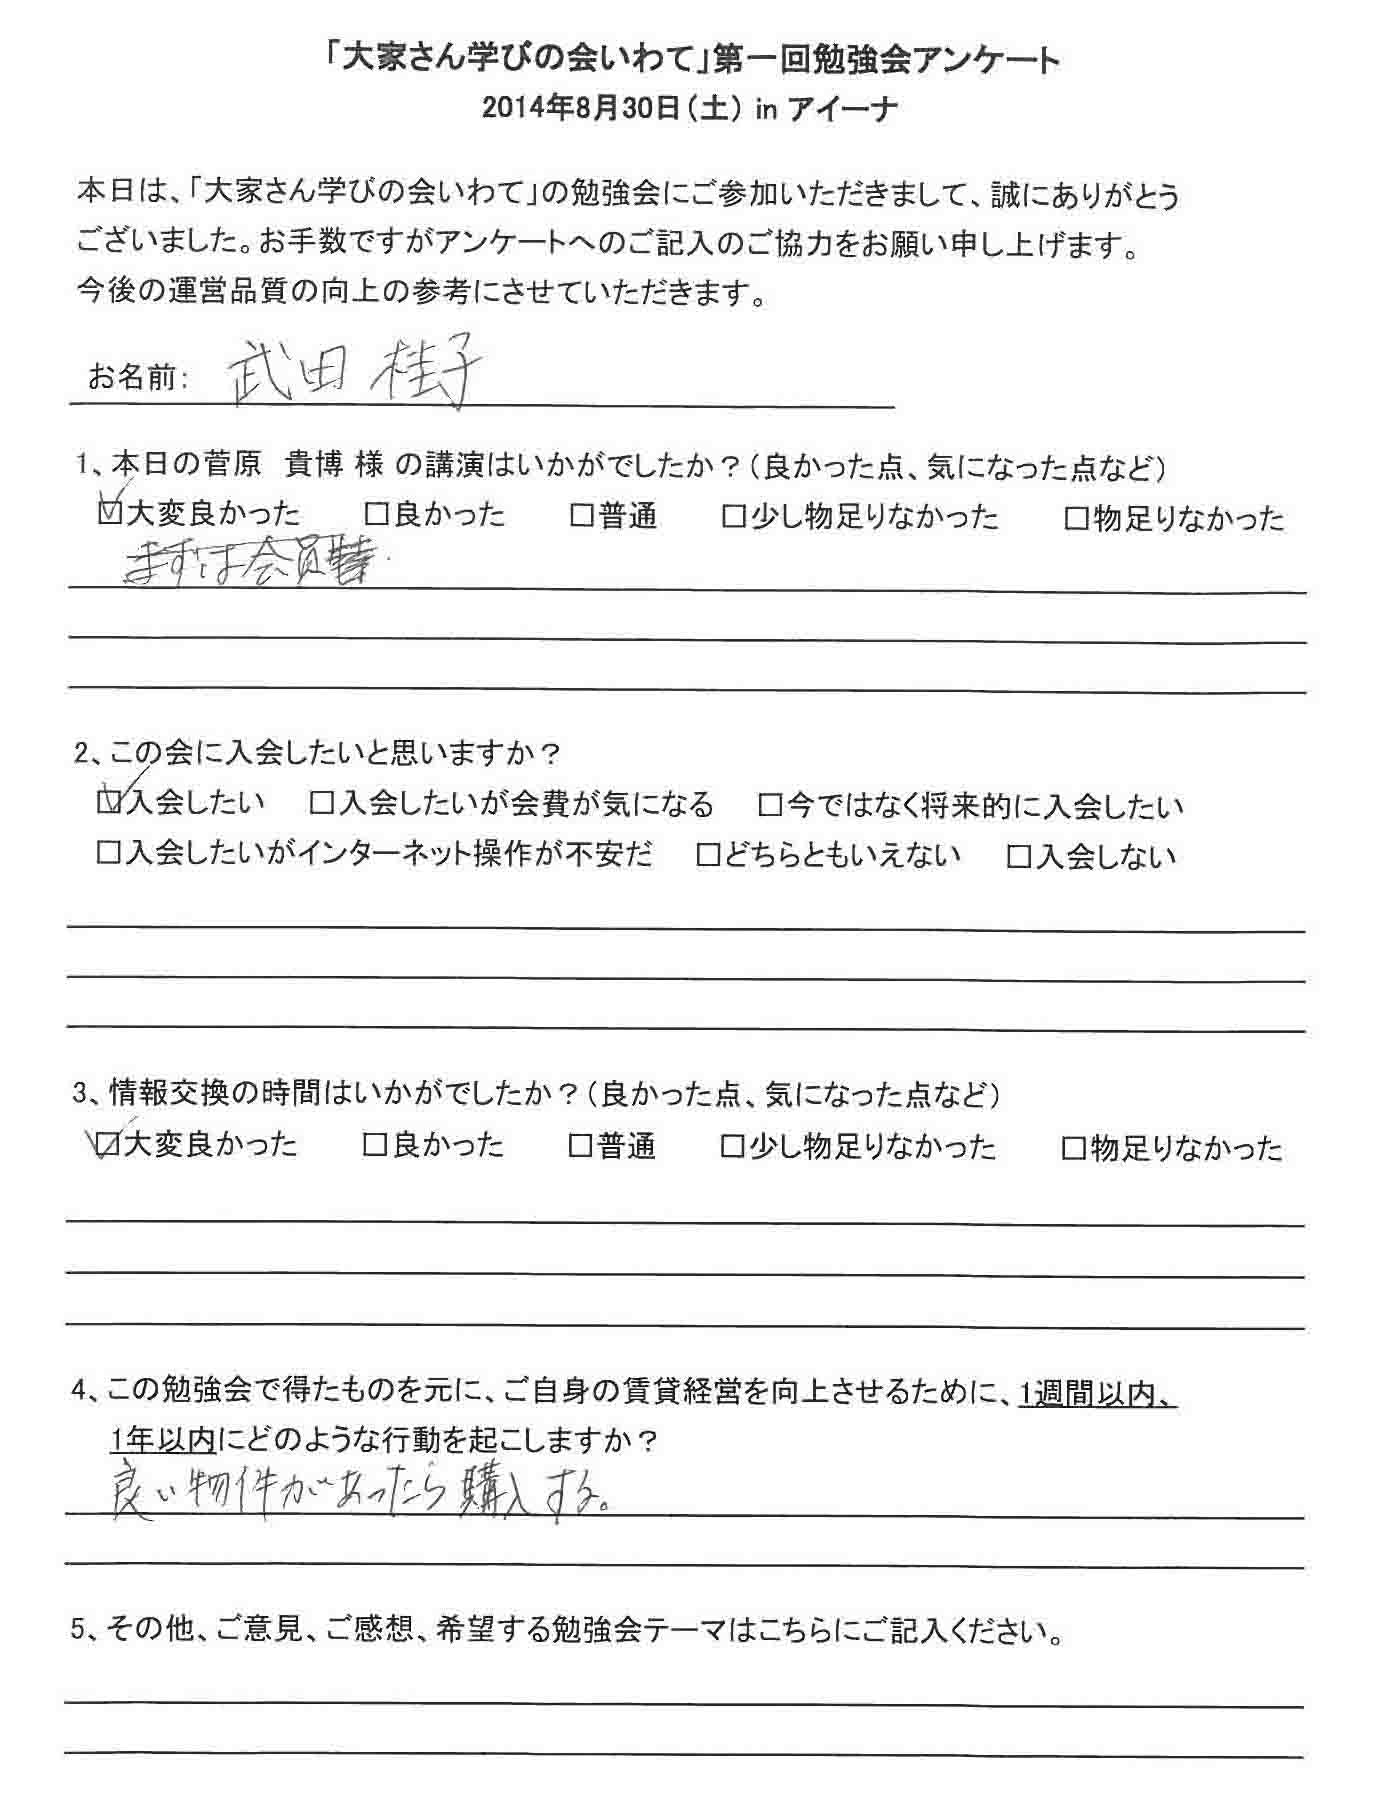 「大家さん学びの会いわて」第一回勉強会アンケート
2014年8月30日(土) in アイーナ
本日は、「大家さん学びの会いわて」の勉強会にご参加いただきまして、誠にありがとう
ございました。お手数ですがアンケートへのご記入のご協力をお願い申し上げます。
今後の運営品質の向上の参考にさせていただきます。
お名前: 武田 桂子
1、本日の菅原 貴博 様 の講演はいかがでしたか?(良かった点、気になった点など)
☑大変良かった □良かった □普通 □少し物足りなかった □物足りなかった
まずは会員
2、この会に入会したいと思いますか?
☑入会したい □入会したいが会費が気になる □今ではなく将来的に入会したい
□入会したいがインターネット操作が不安だ □どちらともいえない □入会しない
3、情報交換の時間はいかがでしたか?(良かった点、気になった点など)
☑大変良かった □良かった □普通 □少し物足りなかった □物足りなかった
4、この勉強会で得たものを元に、ご自身の賃貸経営を向上させるために、1週間以内、
1年以内にどのような行動を起こしますか?
良い物件があったら購入する。
5、その他、ご意見、ご感想、希望する勉強会テーマはこちらにご記入ください。